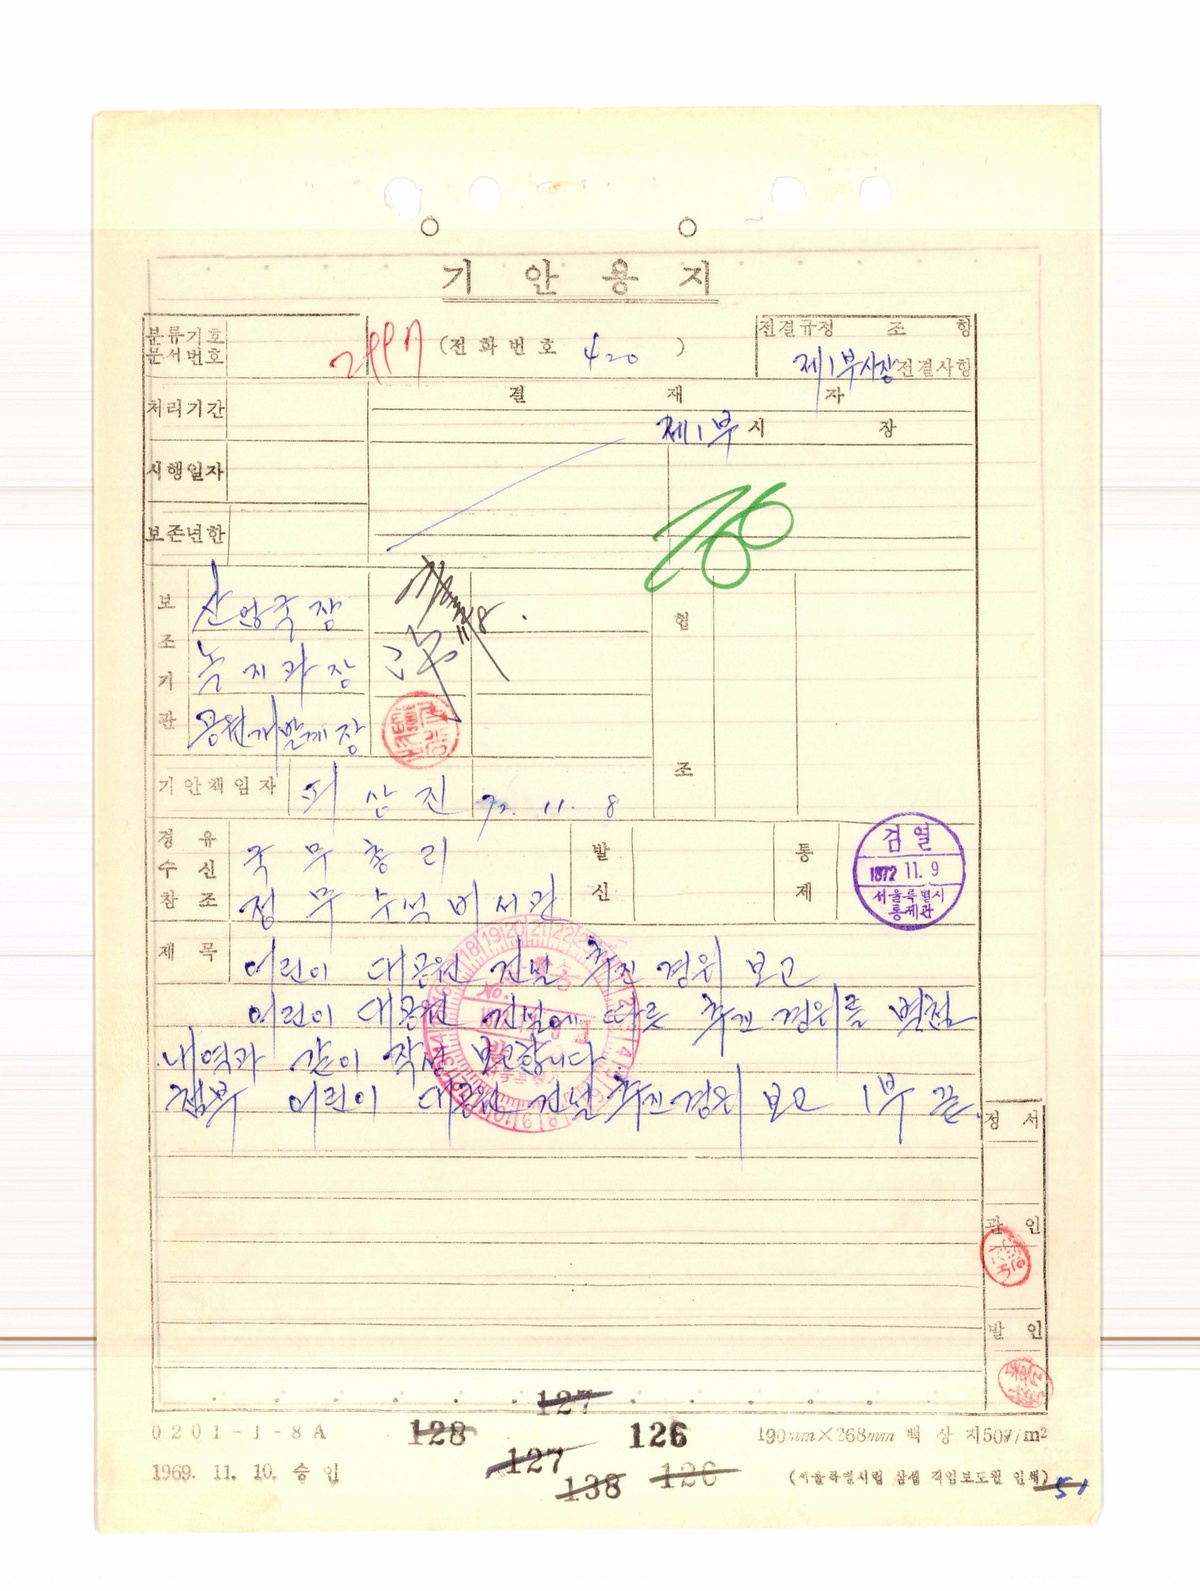 기 안 용 지
분류기호
문서번호
(전화번호 420 )
전결규정 조 항
제1부시장 전결사항
처리기간
결 재 자
제1부 시 장
시행일자
보존년한
보 조 기 관
산업국장
11/8.
농지과장
공원개발계장
협 조
기안책임자 피상진 72. 11. 8
경 유
수 신 국무총리
참 조 정무수석비서관
발 신
통 제
검열
1972 11. 9
서울특별시
통제관
제 목 어린이 대공원 건설 추진 경위 보고
어린이 대공원 건설에 따른 추진 경위를 별첨
내역과 같이 작성 보고합니다
첨부 어린이 대공원 건설 추진 경위 보고 1부 끝.
정 서
관 인
발 인
127
128
126
127
138
126
0201-1-8A
1969. 11. 10. 승인
190mm×268mm 백상지 50g/m2
(서울특별시립 삼섬 직업보도원 인쇄)
51